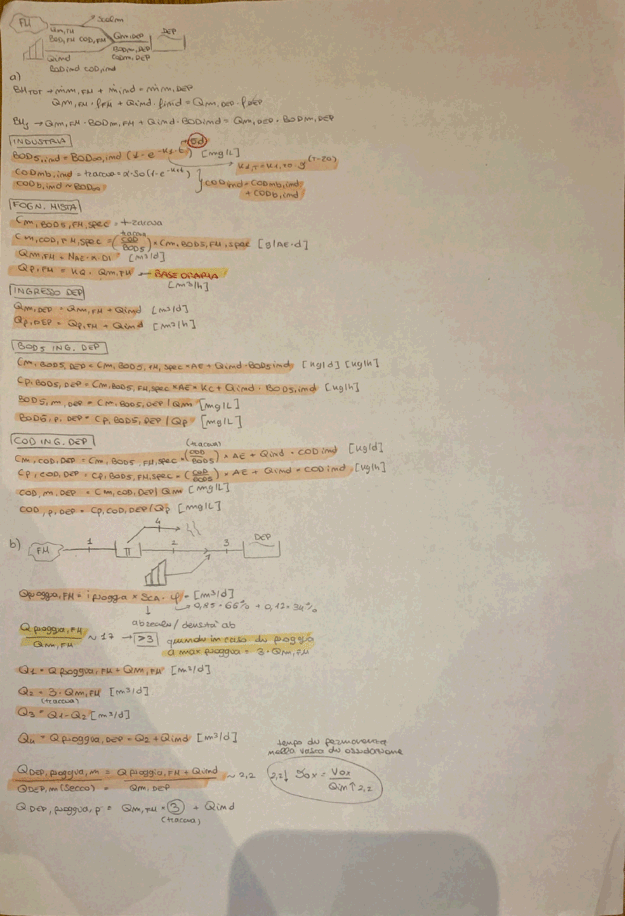 FM
Scolm
Qm,FH
BOD5,FH COD,FH
Qm,DEP
BODm,DEP
CODm,DEP
DEP
Qind
BODind CODind
a)
BMTOT → ṁm,FH + ṁind = ṁm,DEP
Qm,FH · ρFH + Qind · ρind = Qm,DEP · ρDEP
BMs → Qm,FH · BODm,FH + Qind · BODind = Qm,DEP · BODm,DEP
INDUSTRIA
5d
BOD5,ind = BOD∞,ind (1 - e^-K1·t) [mg/L]
K1,T = K1,20 · γ^(T-20)
CODmb,ind = traccia + α·So (1 - e^-K1t)
CODb,ind ~ BOD∞
CODind = CODmb,ind + CODb,ind
FOGN. MISTA
Cm,BOD5,FH,SPEC = traccia
traccia
Cm,COD,FH,SPEC = (COD/BOD5) × Cm,BOD5,FH,SPEC [g/AE·d]
Qm,FH = NAE × DI [m³/d]
Qp,FH = KQ · Qm,FH ← BASE ORARIA
[m³/h]
INGRESSO DEP
Qm,DEP = Qm,FH + Qind [m³/d]
Qp,DEP = Qp,FH + Qind [m³/h]
BOD5 ING. DEP
Cm,BOD5,DEP = Cm,BOD5,FH,SPEC × AE + Qind · BOD5,ind [kg/d] [kg/h]
Cp,BOD5,DEP = Cm,BOD5,FH,SPEC × AE × KC + Qind · BOD5,ind [kg/h]
BOD5,m,DEP = Cm,BOD5,DEP / Qm [mg/L]
BOD5,p,DEP = Cp,BOD5,DEP / Qp [mg/L]
COD ING. DEP
(traccia)
Cm,COD,DEP = Cm,BOD5,FH,SPEC × (COD/BOD5) × AE + Qind · COD ind [kg/d]
Cp,COD,DEP = Cp,BOD5,FH,SPEC × (COD/BOD5) × AE + Qind × COD ind [kg/h]
COD,m,DEP = Cm,COD,DEP / Qm [mg/L]
COD,p,DEP = Cp,COD,DEP / Qp [mg/L]
b)
FM
1
4
2
3
DEP
Qpioggia,FH = i pioggia × SCA · φ = [m³/d]
0,85·66% + 0,12·34%
ab serviti / densità ab
Qpioggia,FH / Qm,FH ~ 17 → >3
quando in caso di pioggia
a max pioggia = 3·Qm,FH
Q1 = Qpioggia,FH + Qm,FH [m³/d]
Q2 = 3·Qm,FH [m³/d]
(traccia)
Q3 = Q1 - Q2 [m³/d]
Q4 = Qpioggia,DEP = Q2 + Qind [m³/d]
tempo di permanenza
nella vasca di ossidazione
QDEP,pioggia,m / QDEP,m (secco) = Qpioggia,FH + Qind / Qm,DEP ~ 2,2
(2,2↓ ϑox = Vox / Qin↑2,2
QDEP,pioggia,p = Qm,FH · 3 + Qind
(traccia)